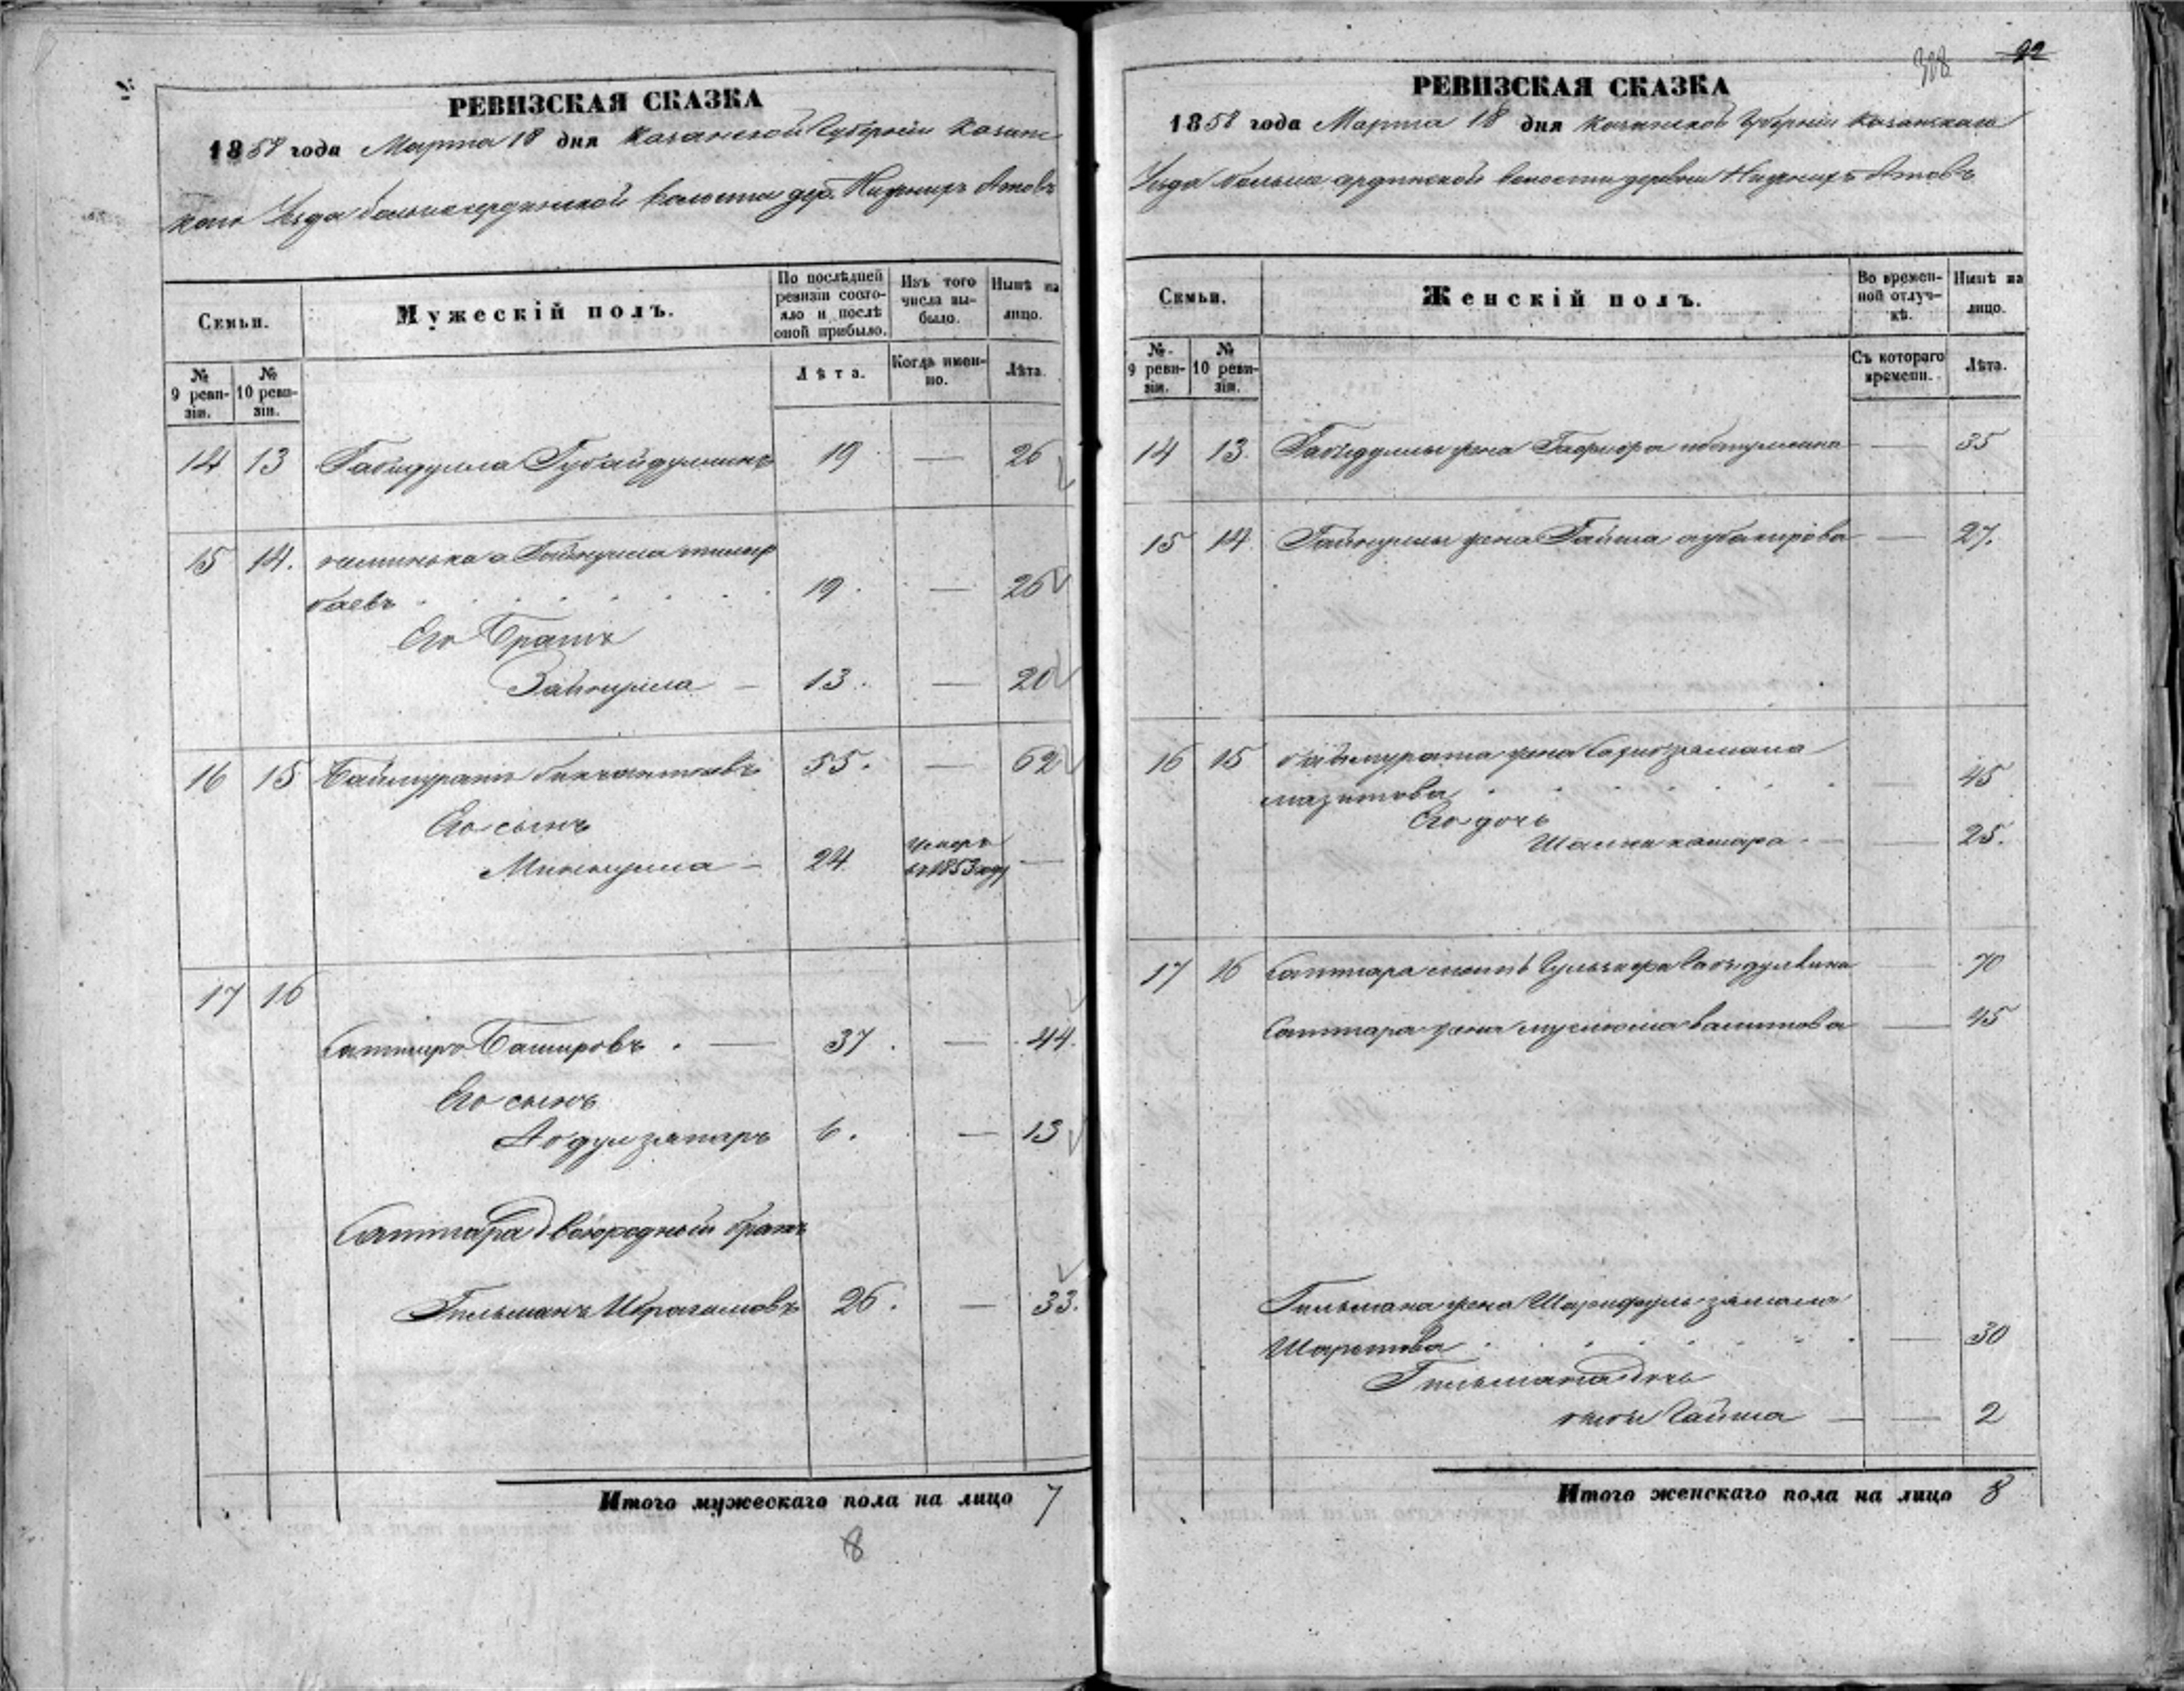 РЕВИЗСКАЯ СКАЗКА
1858 года Марта 18 дня Казанской Губернiи Казанс
каго Уѣзда большесердинской волости дер. Нижнихъ Атовъ
Семьи.
Мужескiй полъ.
По послѣдней ревизiи состо-
яло и послѣ
оной прибыло.
Изъ того
числа вы-
было.
Нынѣ на
лицо.
№
9 реви-
зiи.
№
10 реви-
зiи.
Лѣта.
Когда имен-
но.
Лѣта.
14 13 Габидулла Губайдуллинъ 19 — 26
15 14. Гайнулла тимир
баевъ 19. — 26
Его Братъ
Зайнулла — 13. — 20
16 15 Баймуратъ 55. — 62
Его сынъ
Миннулла — 24 Умеръ
въ 1853 году —
17 16
Саттаръ Башировъ. — 37. — 44.
Его сынъ
Абдулзапаръ 6. — 13
Саттара двоюродный братъ
Гильманъ Ибрагимовъ 26. — 33.
Итого мужескаго пола на лицо 7
8
308
92
РЕВИЗСКАЯ СКАЗКА
1858 года Марта 18 дня Казанской Губернiи Казанскаго
Уѣзда большесердинской волости деревни Нижнихъ Атовъ
Семьи.
Женскiй полъ.
Во времен-
ной отлуч-
кѣ.
Нынѣ на
лицо.
№
9 реви-
зiи.
№
10 реви-
зiи.
Съ котораго
времени.
Лѣта.
14 13. Габидуллы жена — 35
15 14. Гайнуллы жена Гайша абубакирова — 27.
16 15 баймурата жена
мазитова — 45
Его дочь
— 25.
17 16 Саттара мать — 70
Саттара жена муслюма валитова — 45
Гильмана жена Шарифуль замала
Шарипова — 30
Гильмана дочь
Гайша — — 2
Итого женскаго пола на лицо 8